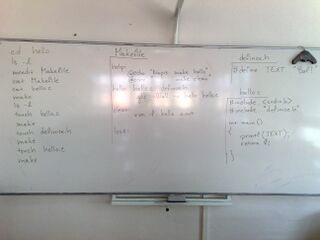 cd hello
ls -l
mcedit Makefile
cat Makefile
cat hello.c
make
ls -l
touch hello.c
make
touch defines.h
make
touch hello.c
make
Makefile
help:
@echo "Napis make hello"
@echo
hello: hello.c defines.h
gcc -Wall -o hello hello.c
clean:
rm -f hello
defines.h
#define TEXT
hello.c
#include <stdio.h>
#include "defines.h"
int main()
{
printf(TEXT);
return 0;
}